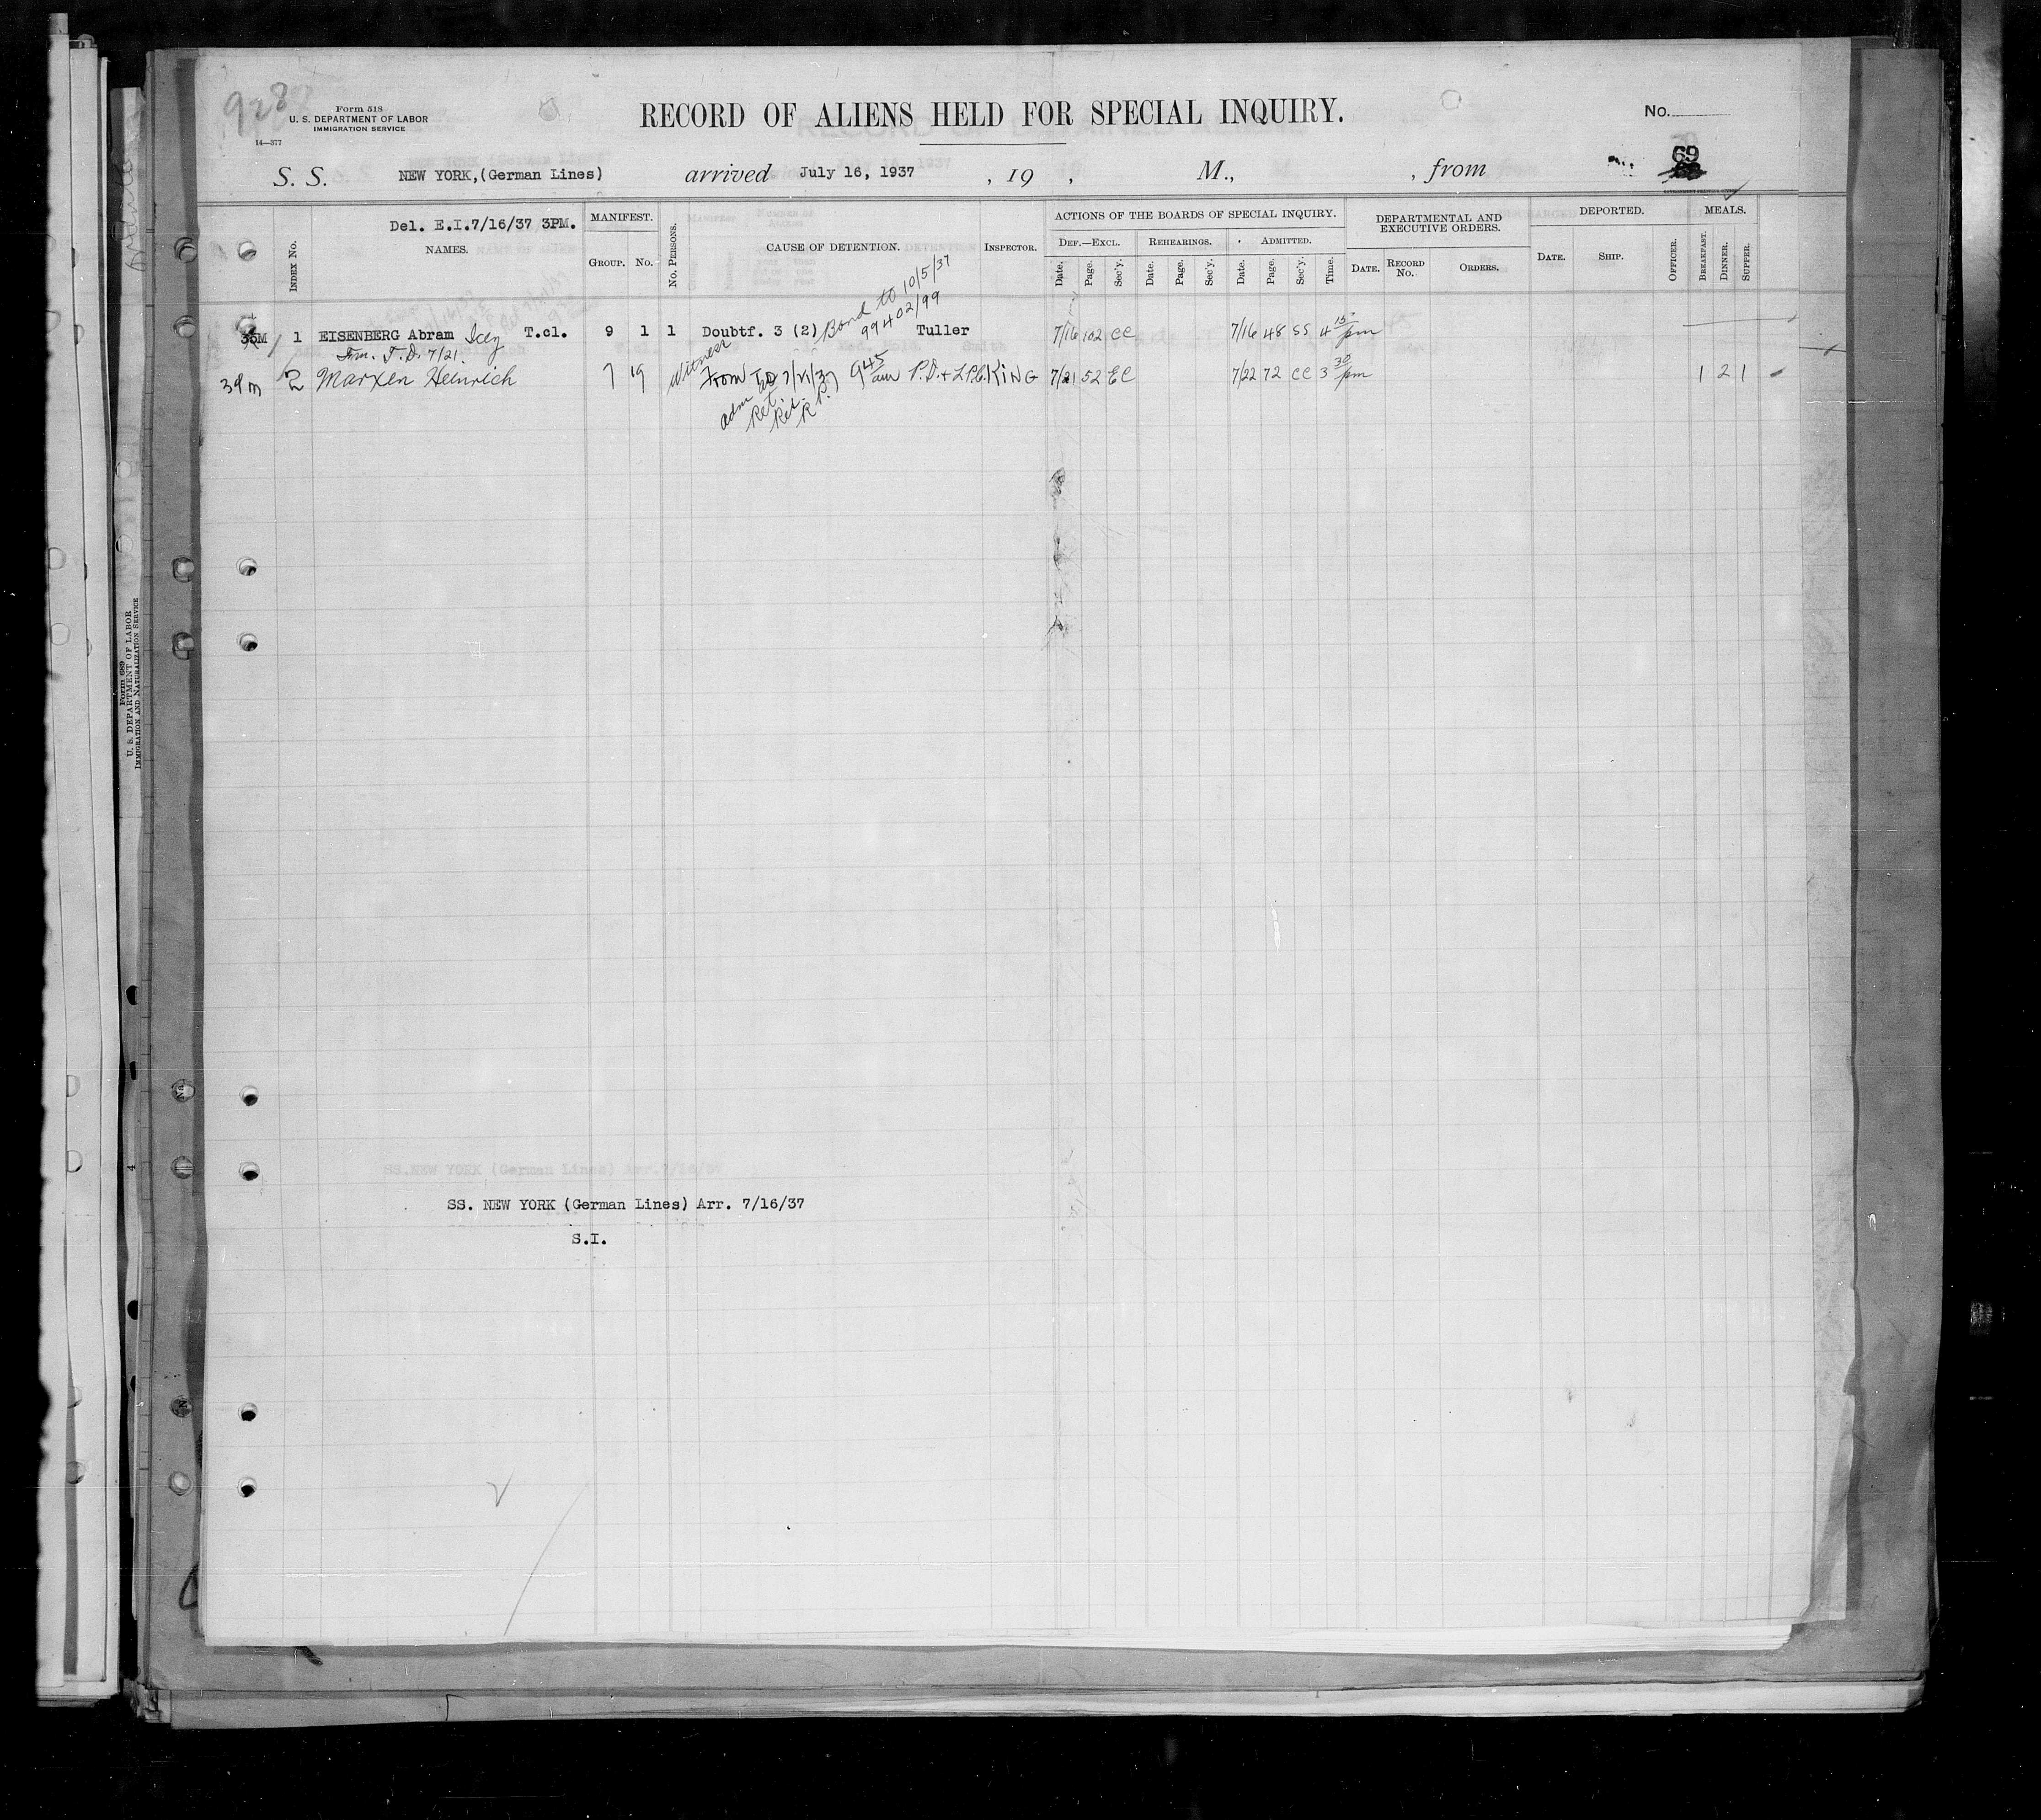 928
Form 518
U. S. DEPARTMENT OF LABOR
IMMIGRATION SERVICE
14—377
RECORD OF ALIENS HELD FOR SPECIAL INQUIRY.
No.
69
S. S. NEW YORK, (German Lines) arrived July 16, 1937 , 19 , M., , from
Del. E.I.7/16/37 3PM.
INDEX No. NAMES. MANIFEST. GROUP. No. No. PERSONS. CAUSE OF DETENTION. INSPECTOR. ACTIONS OF THE BOARDS OF SPECIAL INQUIRY. DEPARTMENTAL AND EXECUTIVE ORDERS. DEPORTED. MEALS.
DEF.—EXCL. REHEARINGS. ADMITTED.
Date. Page. Sec'y. Date. Page. Sec'y. Date. Page. Sec'y. Time. DATE. RECORD No. ORDERS. DATE. SHIP. OFFICER. BREAKFAST. DINNER. SUPPER.
Bond to 10/5/37
99402/99
1 EISENBERG Abram Icey T.cl. 9 1 1 Doubtf. 3 (2) Tuller 7/16 102 CC 7/16 48 SS 4 15 pm
T.D. 7/21.
Witness
39 m 2 Marxen Heinrich 7 19 From TD 7/21/37 9 45 am P.D. + L.P.C. KING 7/21 52 EC 7/22 72 CC 3 30 pm 1 2 1
adm
Ret.
Rel.
R.P.
Form 689
U. S. DEPARTMENT OF LABOR
IMMIGRATION AND NATURALIZATION SERVICE
4
SS.NEW YORK (German Lines) Arr.7/16/37
SS. NEW YORK (German Lines) Arr. 7/16/37
S.I.